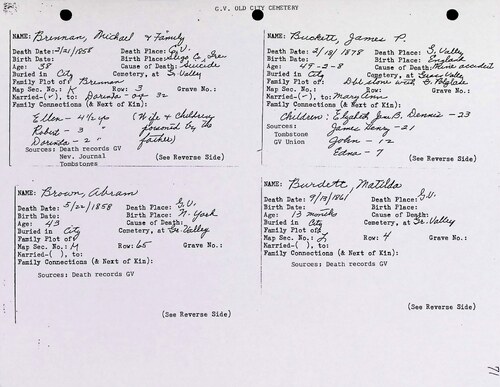 G.V. OLD CITY CEMETERY
NAME: Brennan, Michael & Family
Death Date: 2/21/1858 Death Place: G.V.
Birth Date: Birth Place: Sligo Co., Ire.
Age: 38 Cause of Death: Suicide
Buried in City Cemetery, at Gr. Valley
Family Plot of: Brennan
Map Sec. No.: K Row: 3 Grave No.:
Married-(✓), to: Dorinda - age 32
Family Connections (& Next of Kin):
Ellen - 4½ yo (Wife & children
Robert - 3 " poisoned by the
Dorinda - 2 " father)
Sources: Death records GV
Nev. Journal
Tombstones (See Reverse Side)
NAME: Buckett, James P.
Death Date: 2/18/1878 Death Place: G. Valley
Birth Date: Birth Place: England
Age: 49-2-8 Cause of Death: Mine accident
Buried in City Cemetery, at Grass Valley
Family Plot of: Dbl stone with
Map Sec. No.: Row: Grave No.:
Married-(✓), to: Mary Ann
Family Connections (& Next of Kin):
Children: Elizabeth Jane B. Dennis - 23
Sources: James Henry - 21
Tombstone John - 12
GV Union Edna - 7
(See Reverse Side)
NAME: Brown, Abram
Death Date: 5/22/1858 Death Place: G.V.
Birth Date: Birth Place: N. York
Age: 43 Cause of Death:
Buried in City Cemetery, at Gr. Valley
Family Plot of:
Map Sec. No.: M Row: 65 Grave No.:
Married-( ), to:
Family Connections (& Next of Kin):
Sources: Death records GV
(See Reverse Side)
NAME: Burdett, Matilda
Death Date: 9/13/1861 Death Place: G.V.
Birth Date: Birth Place:
Age: 13 months Cause of Death:
Buried in City Cemetery, at Gr. Valley
Family Plot of:
Map Sec. No.: L Row: 4 Grave No.:
Married-( ), to:
Family Connections (& Next of Kin):
Sources: Death records GV
(See Reverse Side)